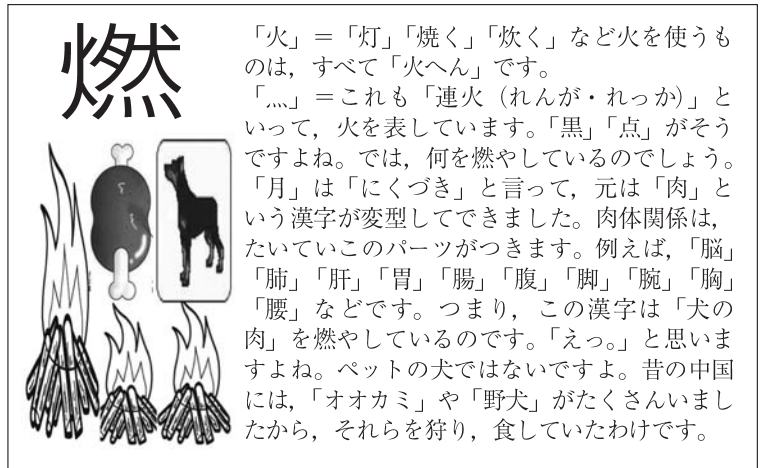 燃
「火」＝「灯」「焼く」「炊く」など火を使うも
のは，すべて「火へん」です。
「灬」＝これも「連火（れんが・れっか）」と
いって，火を表しています。「黒」「点」がそう
ですよね。では，何を燃やしているのでしょう。
「月」は「にくづき」と言って，元は「肉」と
いう漢字が変型してできました。肉体関係は，
たいていこのパーツがつきます。例えば，「脳」
「肺」「肝」「胃」「腸」「腹」「脚」「腕」「胸」
「腰」などです。つまり，この漢字は「犬の
肉」を燃やしているのです。「えっ。」と思いま
すよね。ペットの犬ではないですよ。昔の中国
には，「オオカミ」や「野犬」がたくさんいまし
たから，それらを狩り，食していたわけです。